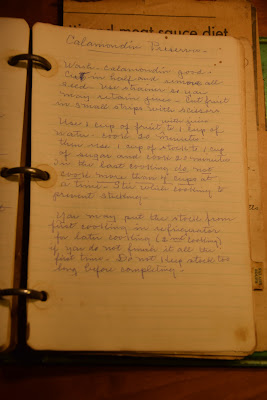 Wired meat sauce diet
Calamondin Preserve -
Wash calamondin good.
Cut in half and remove all
seed. Use strainer so you
may retain juice. Cut fruit
in small strips with scissors
with juice
Use 1 cup of fruit to 1 cup of
water. Cook 20 minutes.
then use 1 cup of stock to 1 cup
of sugar and cook 22 minutes
in this last cooking do not
cook more than 4 cups at
a time. Stir while cooking to
prevent sticking.
You may put the stock from
first cooking in refrigerator
for later cooking (2nd cooking)
if you do not finish it all the
first time. Do not keep stock too
long before completing.